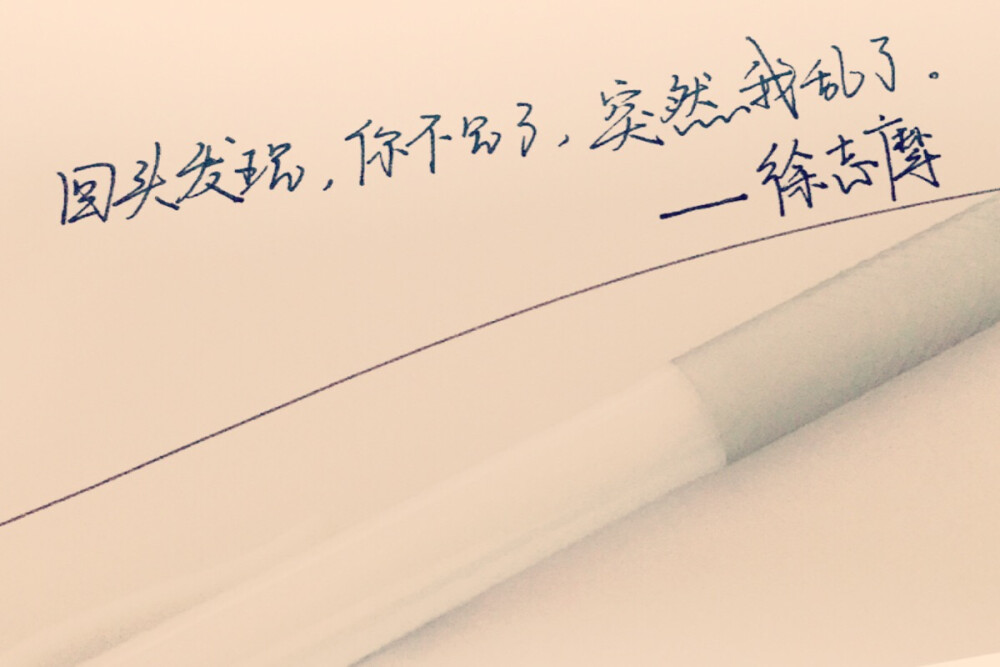 回头发现，你不见了，突然我乱了。
——徐志摩